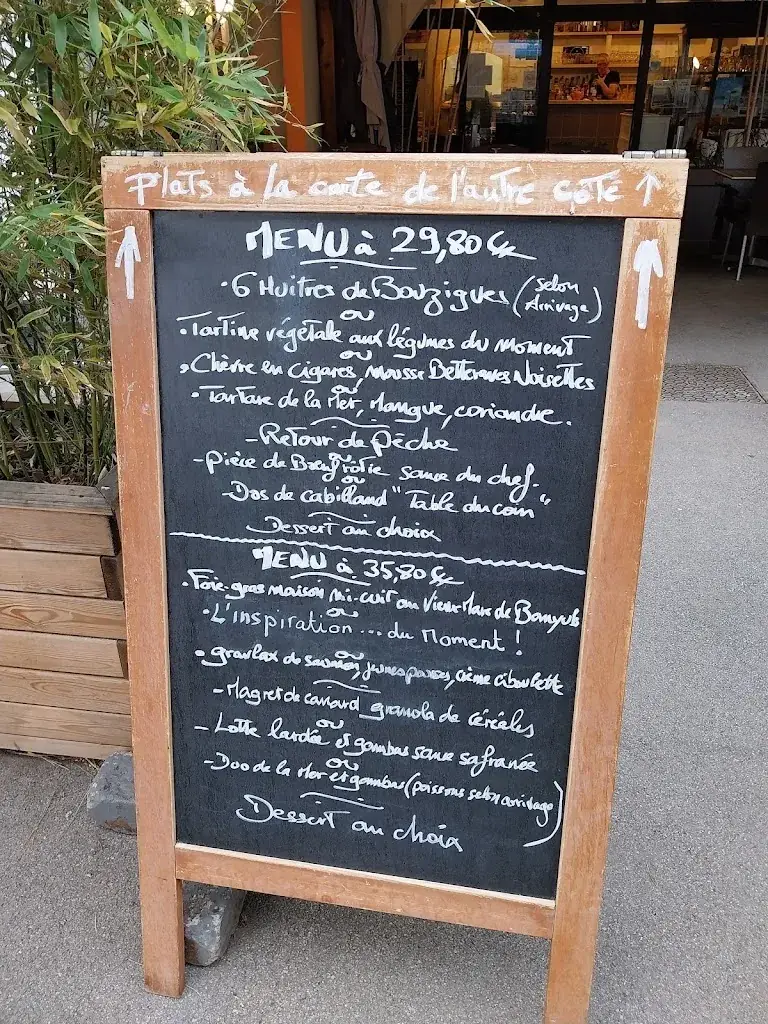 Plats à la carte de l'autre côté ↑
MENU à 29,80 €
• 6 Huitres de Bouzigues (Selon Arrivage)
ou
• Tartine végétale aux légumes du moment
ou
• Chèvre en cigares, mousse Betteraves Noisettes
ou
• Tartare de la Mer, Mangue, coriandre.
- Retour de pêche
ou
- pièce de Boeuf rôtie sauce du chef.
ou
- Dos de cabillaud "Table du coin"
Dessert au choix
MENU à 35,80 €
• Foie-gras maison mi-cuit au Vieux Marc de Banyuls
ou
• L'inspiration... du Moment !
ou
• gravlax de saumon, jeunes pousses, crème ciboulette
- Magret de canard granola de céréales
ou
- Lotte lardée et gambas sauce safranée
ou
- Duo de la Mer et gambas (poissons selon arrivage)
Dessert au choix